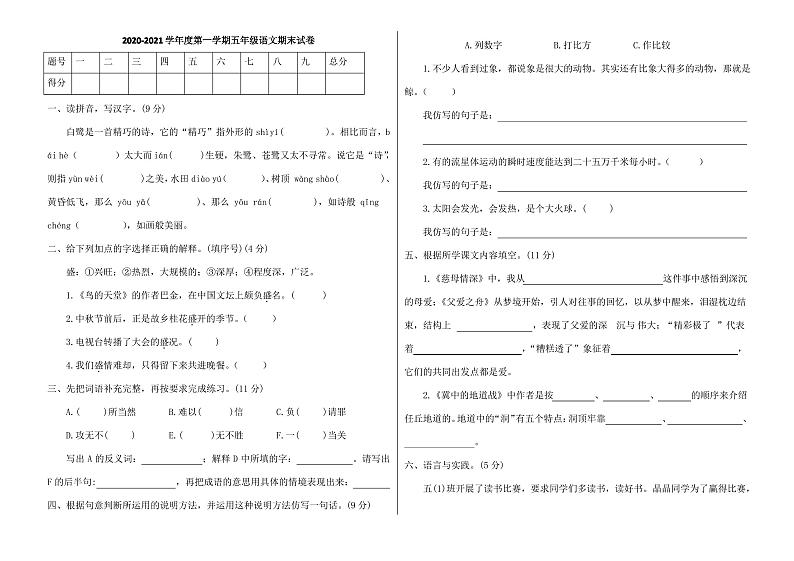 2020-2021学年度第一学期五年级语文期末试卷
题号 一 二 三 四 五 六 七 八 九 总分
得分
一、读拼音，写汉字。(9分)
白鹭是一首精巧的诗，它的“精巧”指外形的shìyí(　　)。相比而言，b
ái hè（　　）太大而jān(　　)生硬，朱鹭、苍鹭又太不寻常。说它是“诗”，
则指yùn wèi(　　)之美，水田diào yú(　　)、树顶 wàng shào(　　)、
黄昏低飞，那么 yōu yǎ(　　)、那么 yōu rán(　　)，如诗般 qīng
chéng(　　)，如画般美丽。
二、给下列加点的字选择正确的解释。(填序号)(4分)
盛：①兴旺；②热烈，大规模的；③深厚；④程度深，广泛。
1.《鸟的天堂》的作者巴金，在中国文坛上颇负盛名。（　　）
2.中秋节前后，正是故乡桂花盛开的季节。（　　）
3.电视台转播了大会的盛况。（　　）
4.我们盛情难却，只得留下来共进晚餐。（　　）
三、先把词语补充完整，再按要求完成练习。(11分)
A.(　　)所当然 B.难以(　　)信 C.负(　　)请罪
D.攻无不(　　) E.(　　)无不胜 F.一(　　)当关
写出A的反义词：________；解释D中所填的字：________。请写出
F的后半句：________，再把成语的意思用具体的情境表现出来：________
四、根据句意判断所运用的说明方法，并运用这种说明方法仿写一句话。(9分)
A.列数字 B.打比方 C.作比较
1.不少人看到过象，都说象是很大的动物。其实还有比象大得多的动物，那就是
鲸。（　　）
我仿写的句子是：________
2.有的流星体运动的瞬时速度能达到二十五万千米每小时。（　　）
我仿写的句子是：________
3.太阳会发光，会发热，是个大火球。（　　）
我仿写的句子是：________
五、根据所学课文内容填空。(11分)
1.《慈母情深》中，我从________这件事中感悟到深沉
的母爱；《父爱之舟》从梦境开始，引人对往事的回忆，以从梦中醒来，泪湿枕边结
束，结构上 ________，表现了父爱的深 沉与伟大；“精彩极了 ”代表
着________，“糟糕透了”象征着________，
它们的共同出发点都是爱。
2.《冀中的地道战》中作者是按________、________、________的顺序来介绍
任丘地道的。地道中的“洞”有五个特点：洞顶牢靠________、________、
________。
六、语言与实践。(5分)
五(1)班开展了读书比赛，要求同学们多读书，读好书。晶晶同学为了赢得比赛，